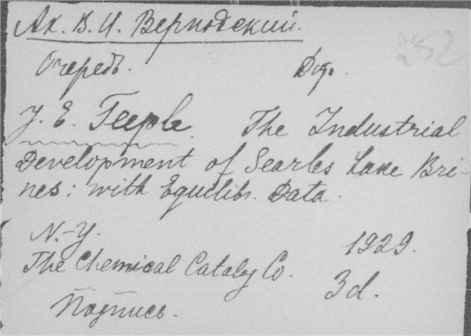 Ак. В. И. Вернадский.
252
Очередь.
J. E. Teeple. The Industrial
Development of Searles Lake Bri-
nes: with Equilib. Data.
N.-Y. 1929.
The Chemical Catalog Co. 3d.
Подпись.